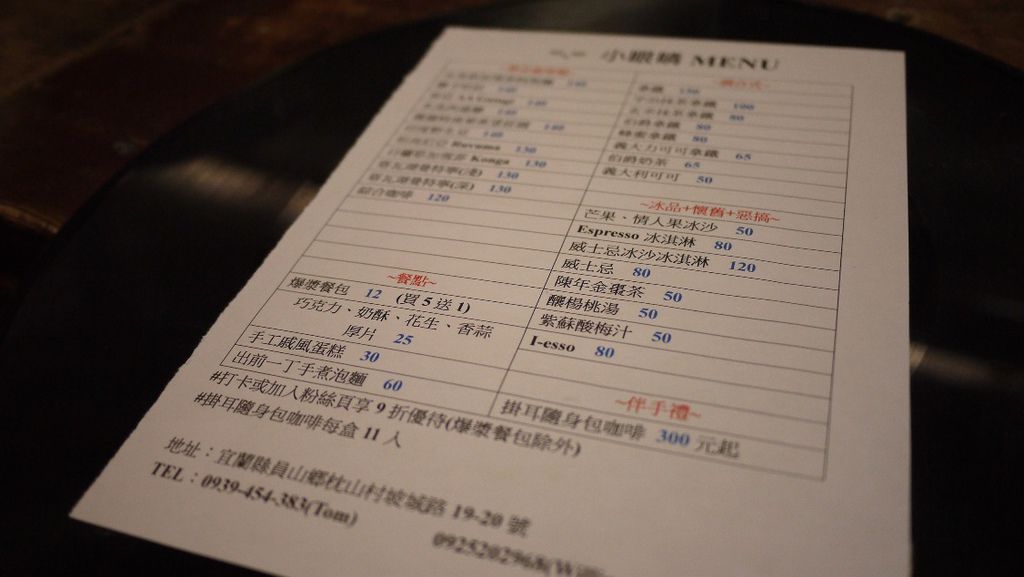 MENU
140
140
140
140
140
Ravuma 130
Konga 130
塔瓦湖曼特寧(淺) 130
塔瓦湖曼特寧(深) 130
綜合咖啡 120
~餐點~
爆漿餐包 12 (買5送1)
巧克力、奶酥、花生、香蒜
厚片 25
手工戚風蛋糕 30
出前一丁手煮泡麵 60
拿鐵
100
80
伯爵拿鐵 80
蜂蜜拿鐵 80
義大力可可拿鐵 65
伯爵奶茶 65
義大利可可 50
~冰品+懷舊+惡搞~
芒果、情人果冰沙 50
Espresso 冰淇淋 80
威士忌冰沙冰淇淋 120
威士忌 80
陳年金棗茶 50
釀楊桃湯 50
紫蘇酸梅汁 50
I-esso 80
~伴手禮~
掛耳隨身包咖啡 300 元起
#打卡或加入粉絲頁享 9 折優待(爆漿餐包除外)
#掛耳隨身包咖啡每盒 11 入
地址：宜蘭縣員山鄉枕山村坡城路 19-20 號
TEL：0939-454-383(Tom)
0925202968